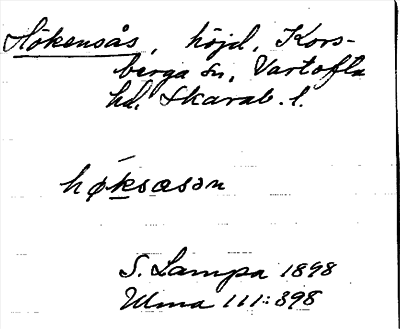 Hökensås, höjd, Kors-
berga sn, Vartofta
hd, Skarab. l.
hø̀ksæsən
S. Lampa 1898
Ulma 111:398